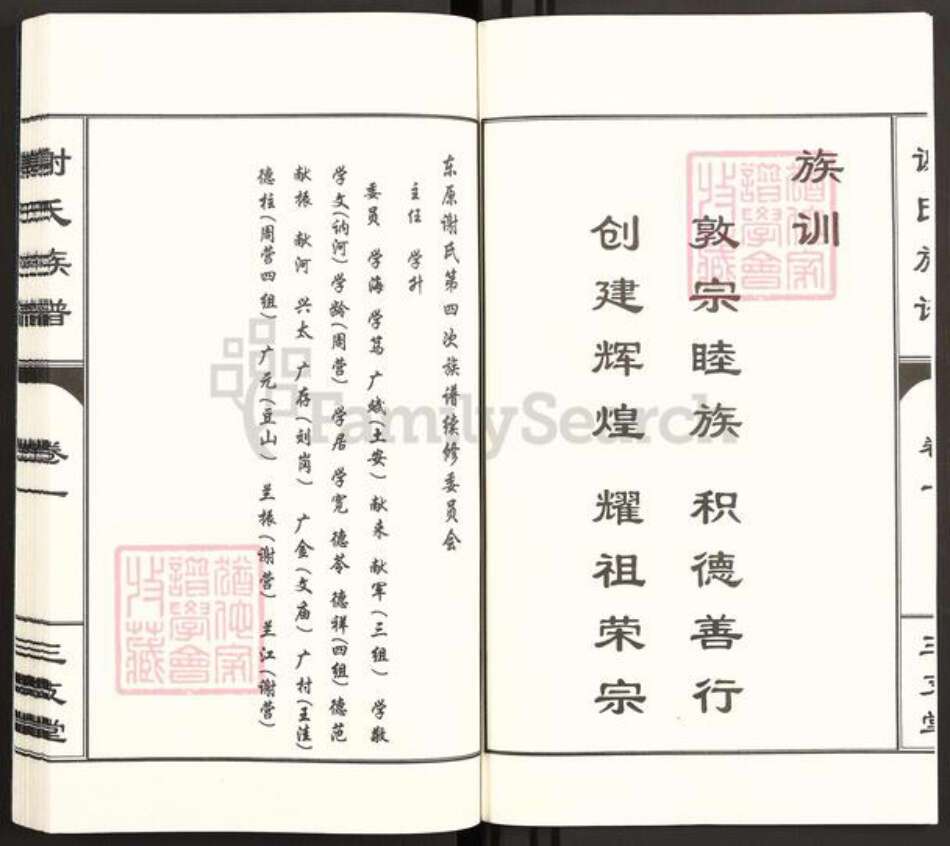 族训
敦宗睦族 积德善行
创建辉煌 耀祖荣宗
东原谢氏第四次族谱续修委员会
主任 学升
委员 学海 学笃 广斌(土安) 献来 献军(三组) 学敬
学文(讷河) 学龄(周营) 学居 学宽 德苓 德祥(四组) 德范
献振 献河 兴太 广存(刘岗) 广金(文庙) 广村(王洼)
德柱(周营四组) 广元(豆山) 兰振(谢营) 兰江(谢营)
谢氏族谱
卷一
三支堂
FamilySearch